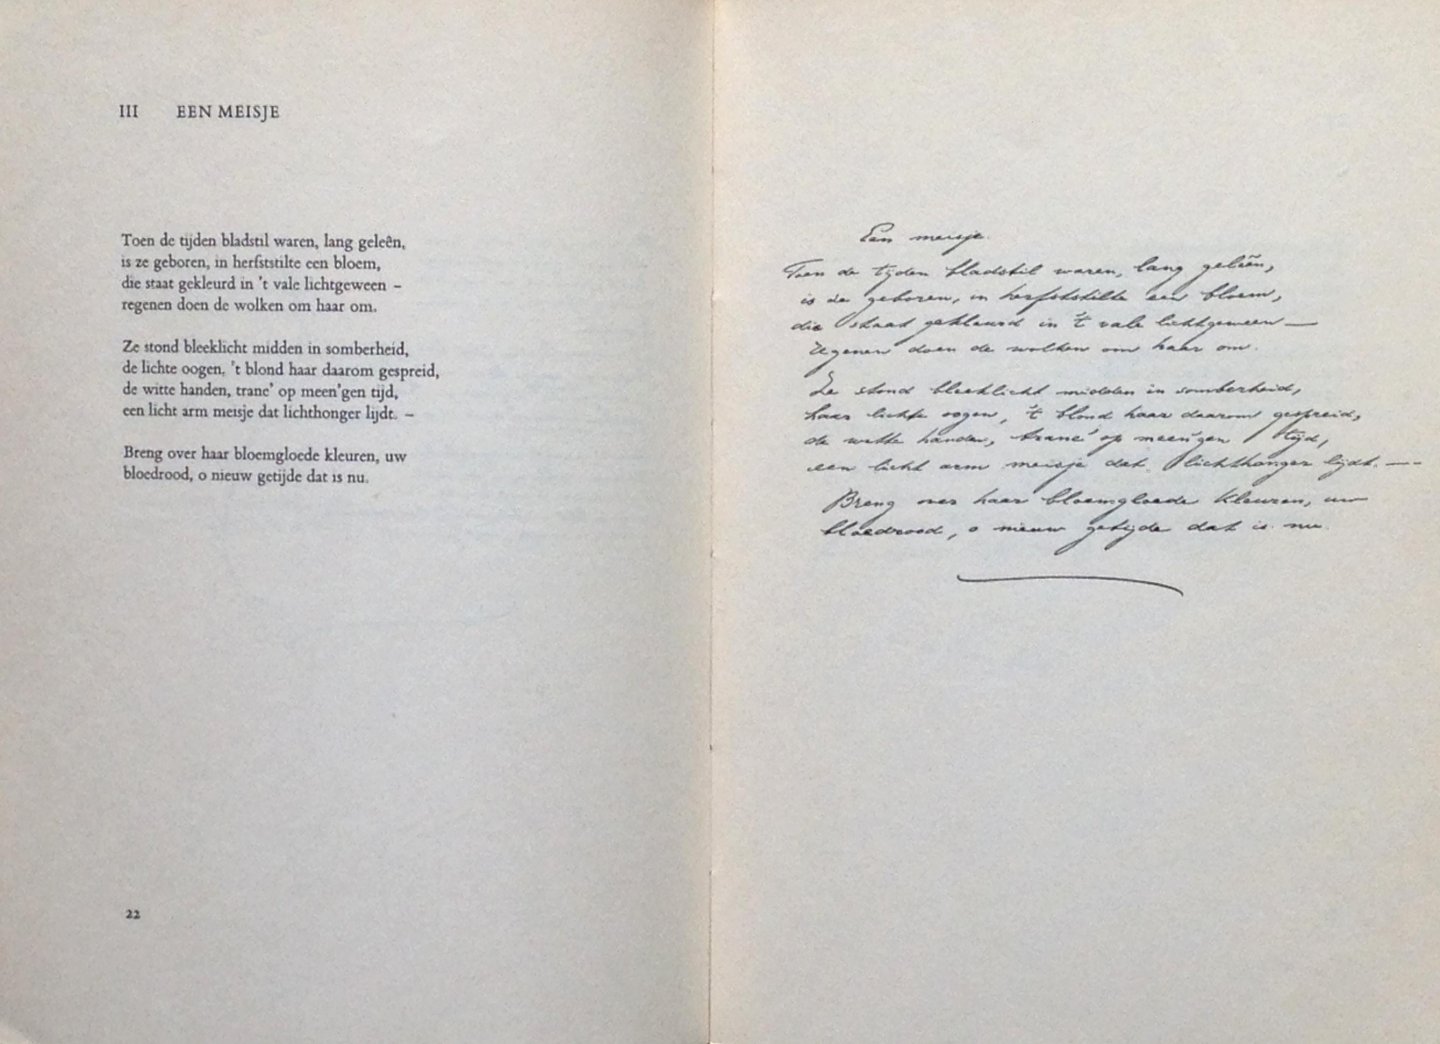 III EEN MEISJE
Toen de tijden bladstil waren, lang geleên,
is ze geboren, in herfststilte een bloem,
die staat gekleurd in 't vale lichtgeween –
regenen doen de wolken om haar om.
Ze stond bleeklicht midden in somberheid,
de lichte oogen, 't blond haar daarom gespreid,
de witte handen, tranc' op meen'gen tijd,
een licht arm meisje dat lichthonger lijdt. –
Breng over haar bloemgloede kleuren, uw
bloedrood, o nieuw getijde dat is nu.
22
Een meisje.
Toen de tijden bladstil waren, lang geleên,
is ze geboren, in herfststilte een bloem,
die staat gekleurd in 't vale lichtgeween —
regenen doen de wolken om haar om.
Ze stond bleeklicht midden in somberheid,
haar lichte oogen, 't blond haar daarom gespreid,
de witte handen, tranc' op meen'gen tijd,
een licht arm meisje dat lichthonger lijdt. —
Breng over haar bloemgloede kleuren, uw
bloedrood, o nieuw getijde dat is nu.